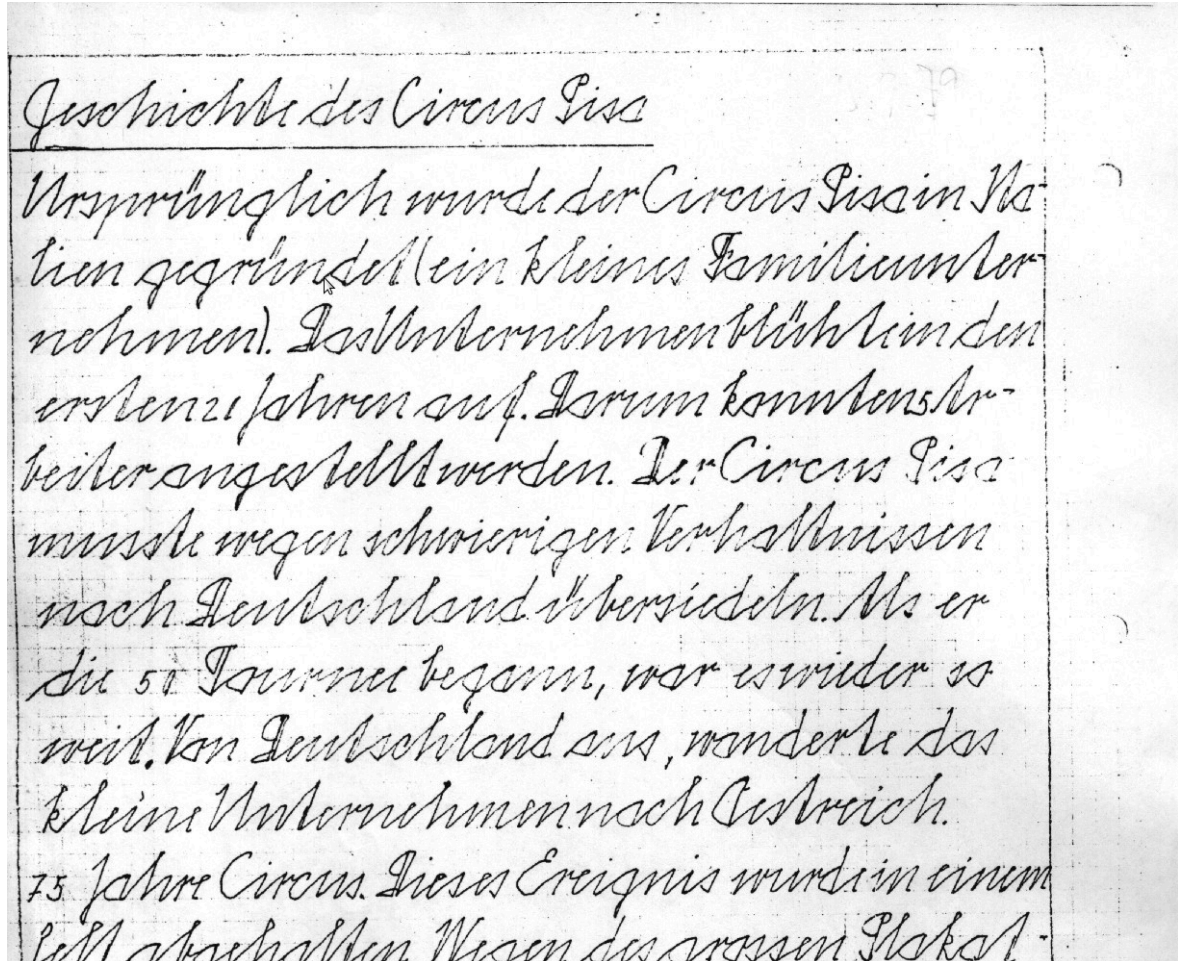 Geschichte des Circus Pisa
Ursprünglich wurde der Circus Pisa in Ita-
lien gegründet (ein kleines Familieunter-
nehmen). Das Unternehmen blühte in den
ersten 21 Jahren auf. Darum konnten 5 Ar-
beiter angestellt werden. Der Circus Pisa
musste wegen schwierigen Verhaltnissen
nach Deutschland übersiedeln. Als er
die 50 Tournee begann, war es wieder so
weit. Von Deutschland aus, wanderte das
kleine Unternehmen nach Oestreich.
75 Jahre Circus. Dieses Ereignis wurde in einem
Zelt abgehalten Wegen des grossen Plakat-